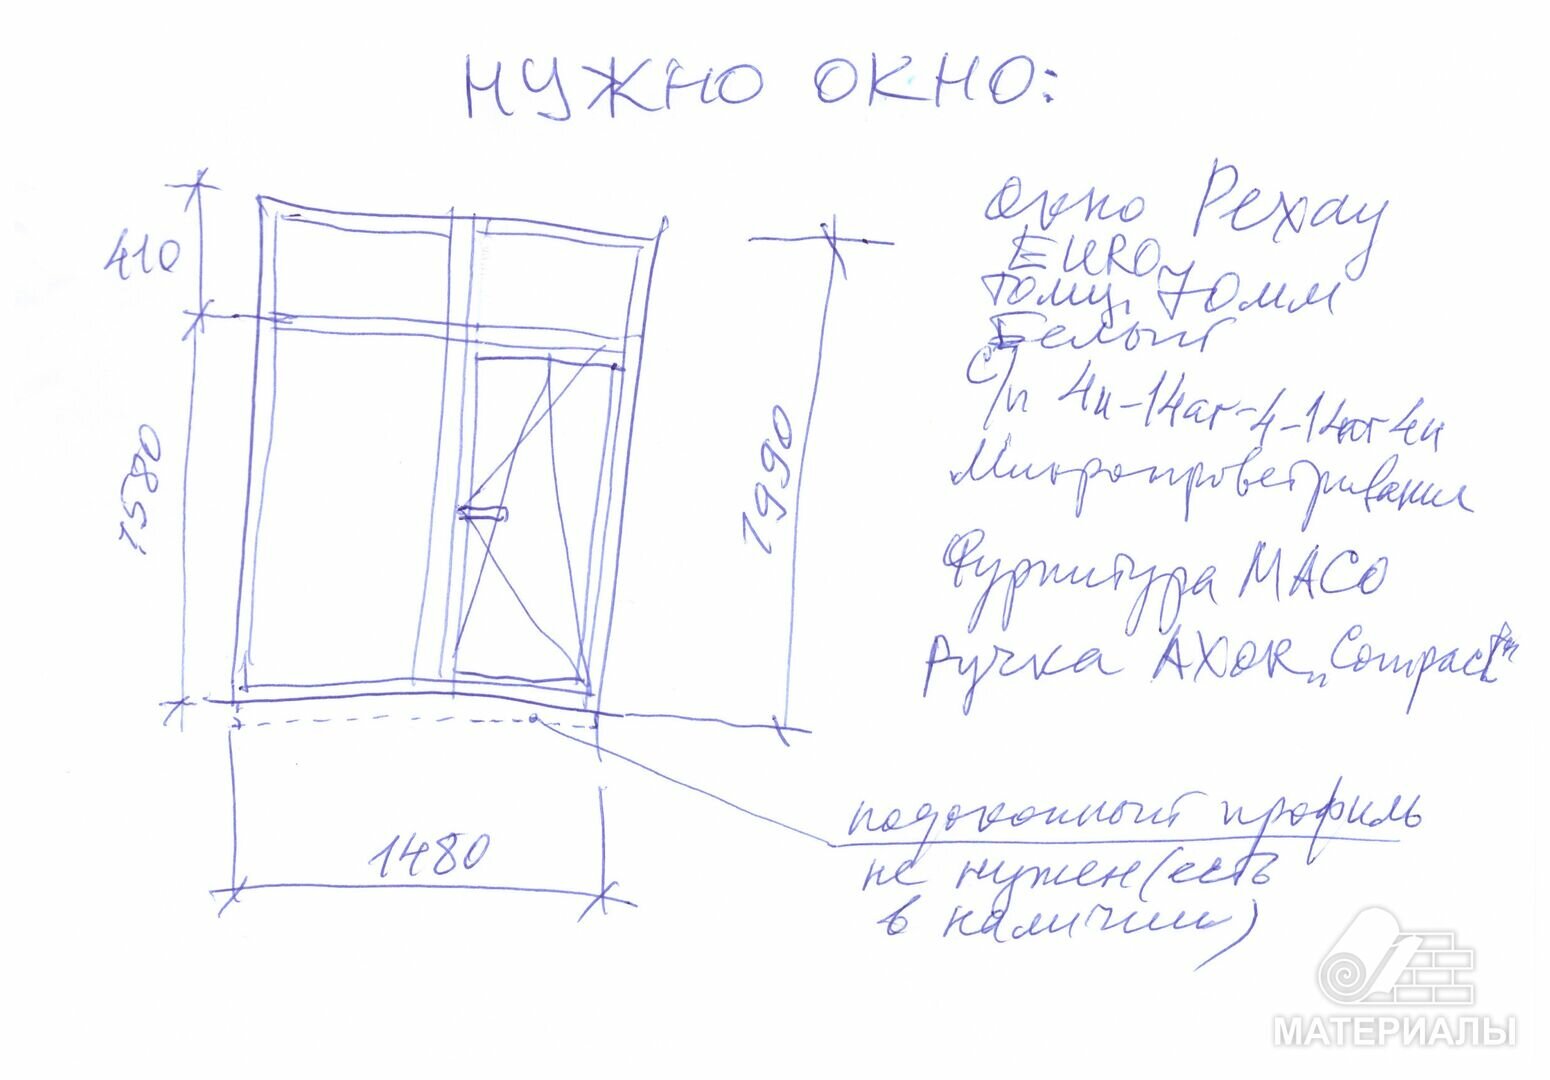 НУЖНО ОКНО:
410
1580
1990
1480
окно Рехау
EURO
толщ. 70мм
Белый
с/п 4и-14аг-4-14аг4и
Микропроветривание
Фурнитура МАСО
Ручка AXOR "Compact"
подоконный профиль
не нужен (есть
в наличии)
МАТЕРИАЛЫ